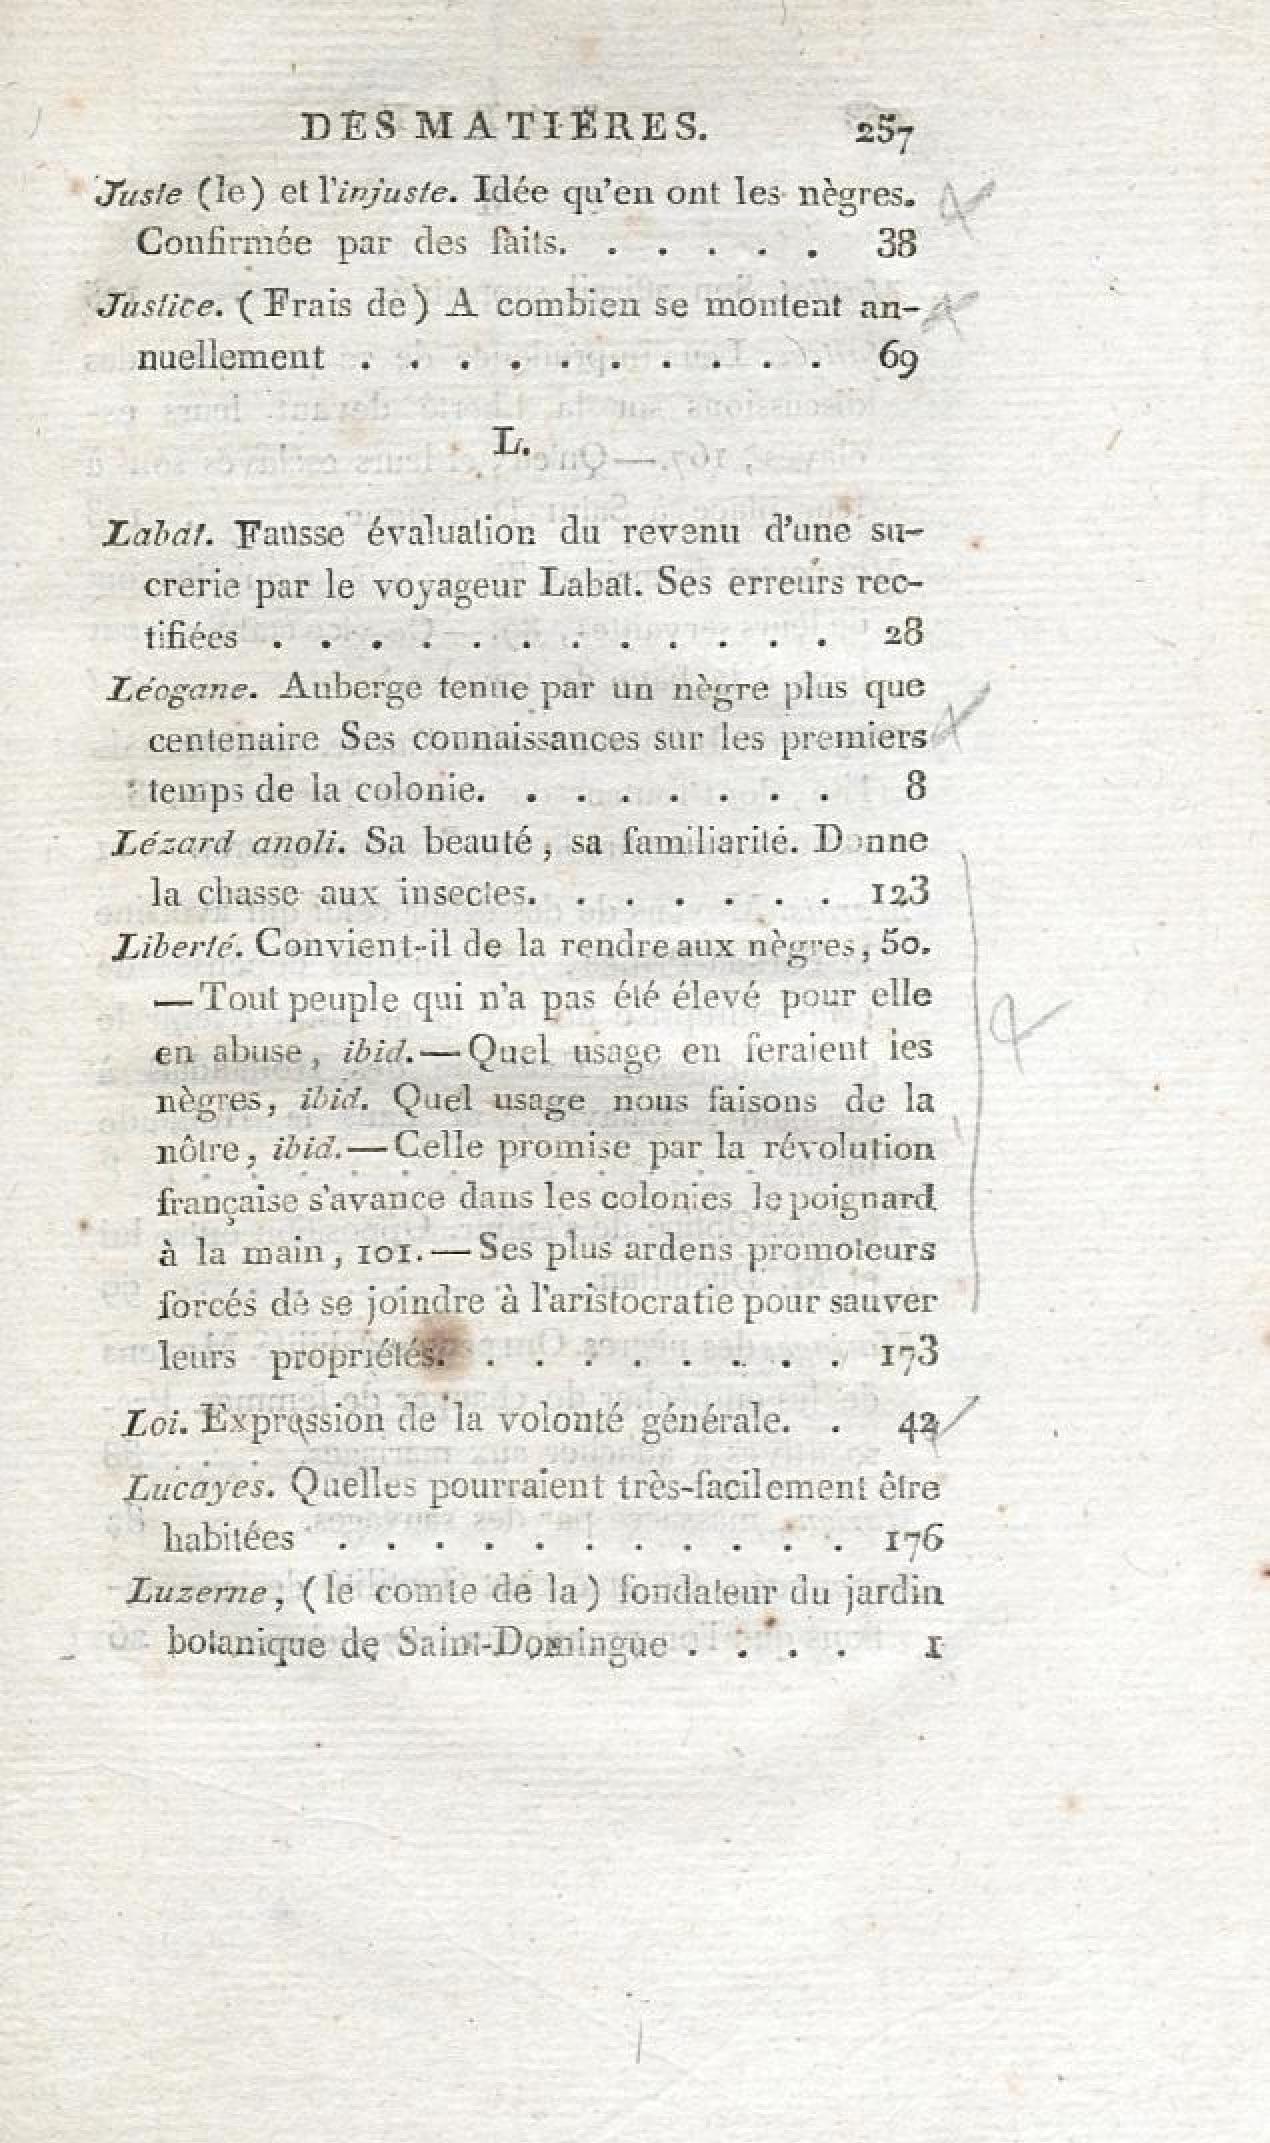 DES MATIÈRES. 257
Juste (le) et l'injuste. Idée qu'en ont les nègres.
Confirmée par des faits. . . . . . 38
Justice. (Frais de) A combien se montent an-
nuellement . . . . . . . . . . 69
L.
Labat. Fausse évaluation du revenu d'une su-
crerie par le voyageur Labat. Ses erreurs rec-
tifiées . . . . . . . . . . . . 28
Léogane. Auberge tenue par un nègre plus que
centenaire Ses connaissances sur les premiers
temps de la colonie. . . . . . . . 8
Lézard anoli. Sa beauté, sa familiarité. Donne
la chasse aux insectes. . . . . . . 123
Liberté. Convient-il de la rendre aux nègres, 50.
—Tout peuple qui n'a pas été élevé pour elle
en abuse, ibid.—Quel usage en feraient les
nègres, ibid. Quel usage nous faisons de la
nôtre, ibid.—Celle promise par la révolution
française s'avance dans les colonies le poignard
à la main, 101.—Ses plus ardens promoteurs
forcés de se joindre à l'aristocratie pour sauver
leurs propriétés. . . . . . . . . 173
Loi. Expression de la volonté générale. . 42
Lucayes. Quelles pourraient très-facilement être
habitées . . . . . . . . . . . 176
Luzerne, (le comte de la) fondateur du jardin
botanique de Saint-Domingue . . . . 1